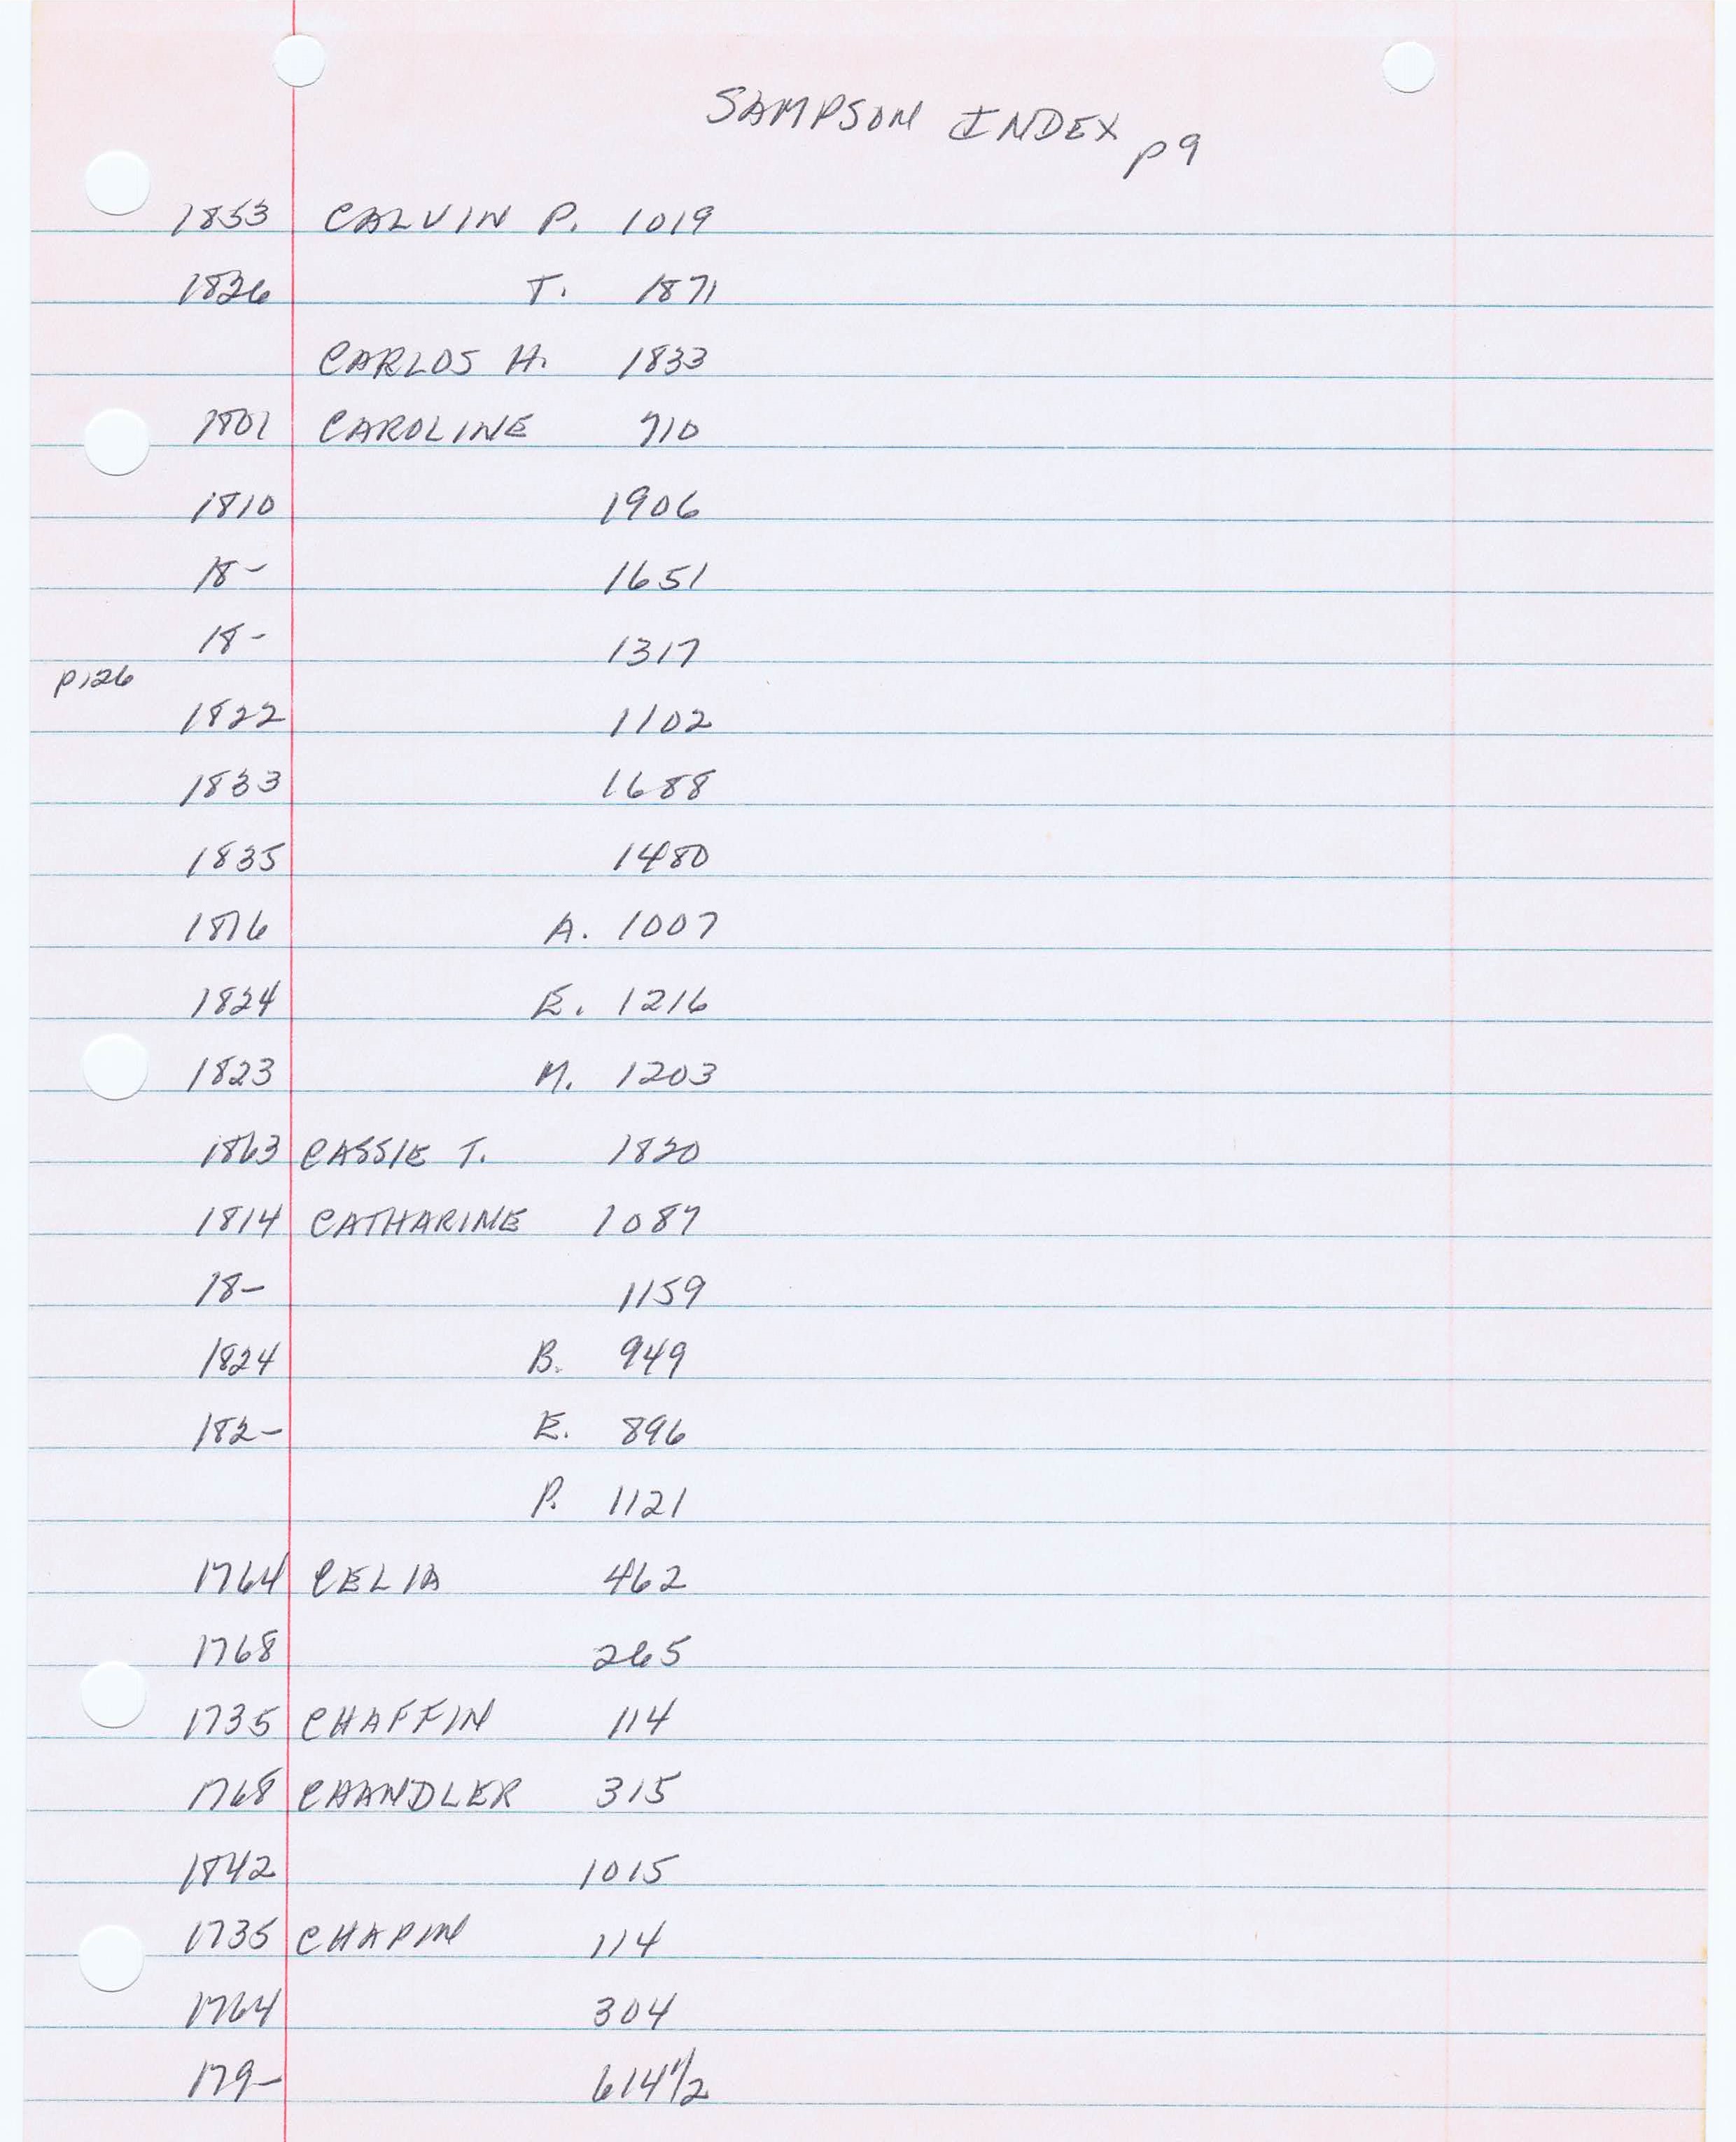 SAMPSON INDEX p9
1853 CALVIN P. 1019
1826 T. 1871
CARLOS H. 1833
1801 CAROLINE 710
1810 1906
18- 1651
18- 1317
p126
1822 1102
1833 1688
1835 1480
1876 A. 1007
1824 E. 1216
1823 M. 1203
1863 CASSIE T. 1820
1814 CATHARINE 1087
18- 1159
1824 B. 949
182- E. 896
P. 1121
1764 CELIA 462
1768 265
1735 CHAFFIN 114
1768 CHANDLER 315
1842 1015
1735 CHAPIN 114
1764 304
179- 614 1/2